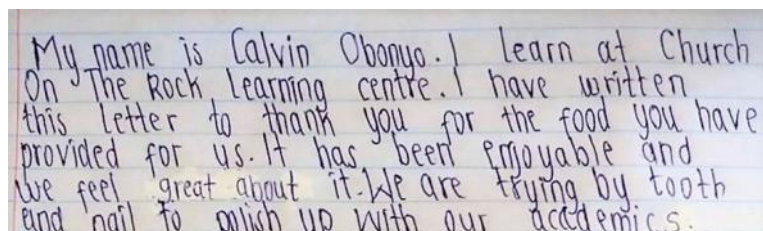 My name is Calvin Obonyo. I learn at Church
On The Rock Learning centre. I have written
this letter to thank you for the food you have
provided for us. It has been enjoyable and
we feel great about it. We are trying by tooth
and nail to polish up with our academics.